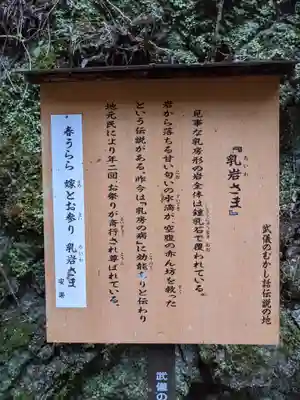 武儀のむかし話伝説の地
『乳岩さま』
見事な乳房形の岩全体は鍾乳石で覆われている。
岩から落ちる甘い匂いの水滴が、空腹の赤ん坊を救った
という伝説がある。昨今は『乳房の病』に効能ありと伝わり
地元民により年二回、お祭りが斎行され尊ばれている。
春うらら 嫁とお参り 乳岩さま
武儀の